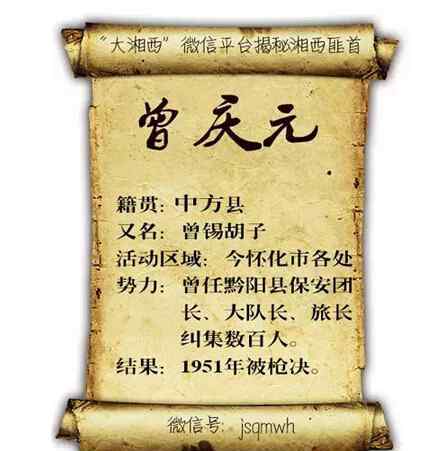 “大湘西”微信平台揭秘湘西匪首
曾庆元
籍贯：中方县
又名：曾锡胡子
活动区域：今怀化市各处
势力：曾任黔阳县保安团
长、大队长、旅长
纠集数百人。
结果：1951年被枪决。
微信号：jsqmwh